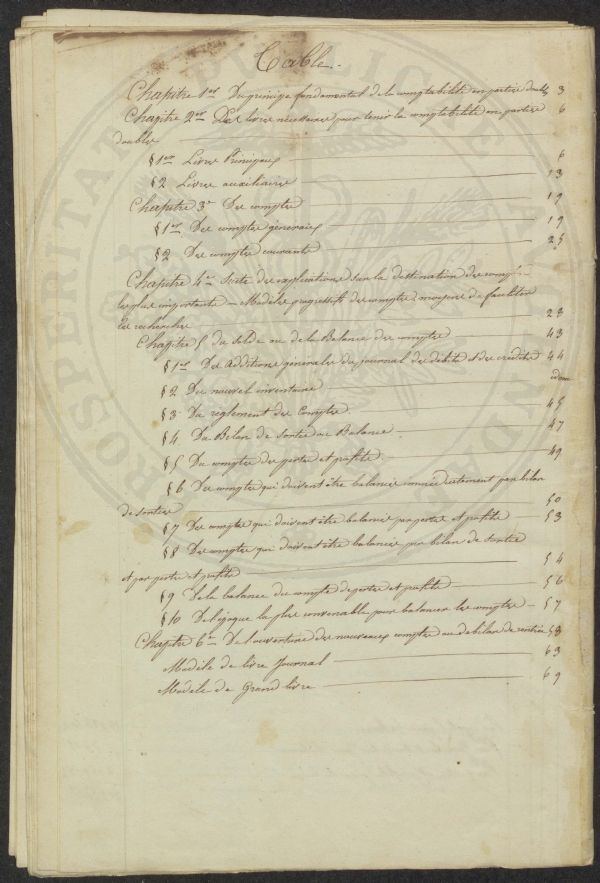 Table.
Chapitre 1er Du principe fondamental de la comptabilité en partie double 3
Chapitre 2me Des livres nécessaires pour tenir la comptabilité en parties 6
doubles
§ 1er Livres Principaux 6
§ 2 Livres auxiliaires 13
Chapitre 3e Des comptes 19
§ 1er Des comptes généraux 19
§ 2 Des comptes courants 25
Chapitre 4me Suite des explications sur la destination des comptes
les plus importants – Modèles progressifs des comptes, moyens de faciliter
les recherches 28
Chapitre 5 du Solde ou de la Balance des comptes 43
§ 1er Des Additions générales du journal des débits & des crédits 44
§ 2 Du nouvel inventaire idem
§ 3 Du règlement des Comptes 45
§ 4 Du Bilan de Sortie ou Balance 47
§ 5 Du compte des pertes et profits 49
§ 6 Des comptes qui doivent être balancés immédiatement par bilan
de sortie 50
§ 7 Des comptes qui doivent être balancés par pertes et profits 53
§ 8 Des comptes qui doivent être balancés par bilan de sortie
et par pertes et profits 54
§ 9 De la balance du compte de pertes et profits 56
§ 10 De l'époque la plus convenable pour balancer les comptes 57
Chapitre 6e De l'ouverture des nouveaux comptes ou de bilan de rentrée 58
Modèle de livre Journal 63
Modèle de Grand livre 69
PROSPERITAT PUBLIC